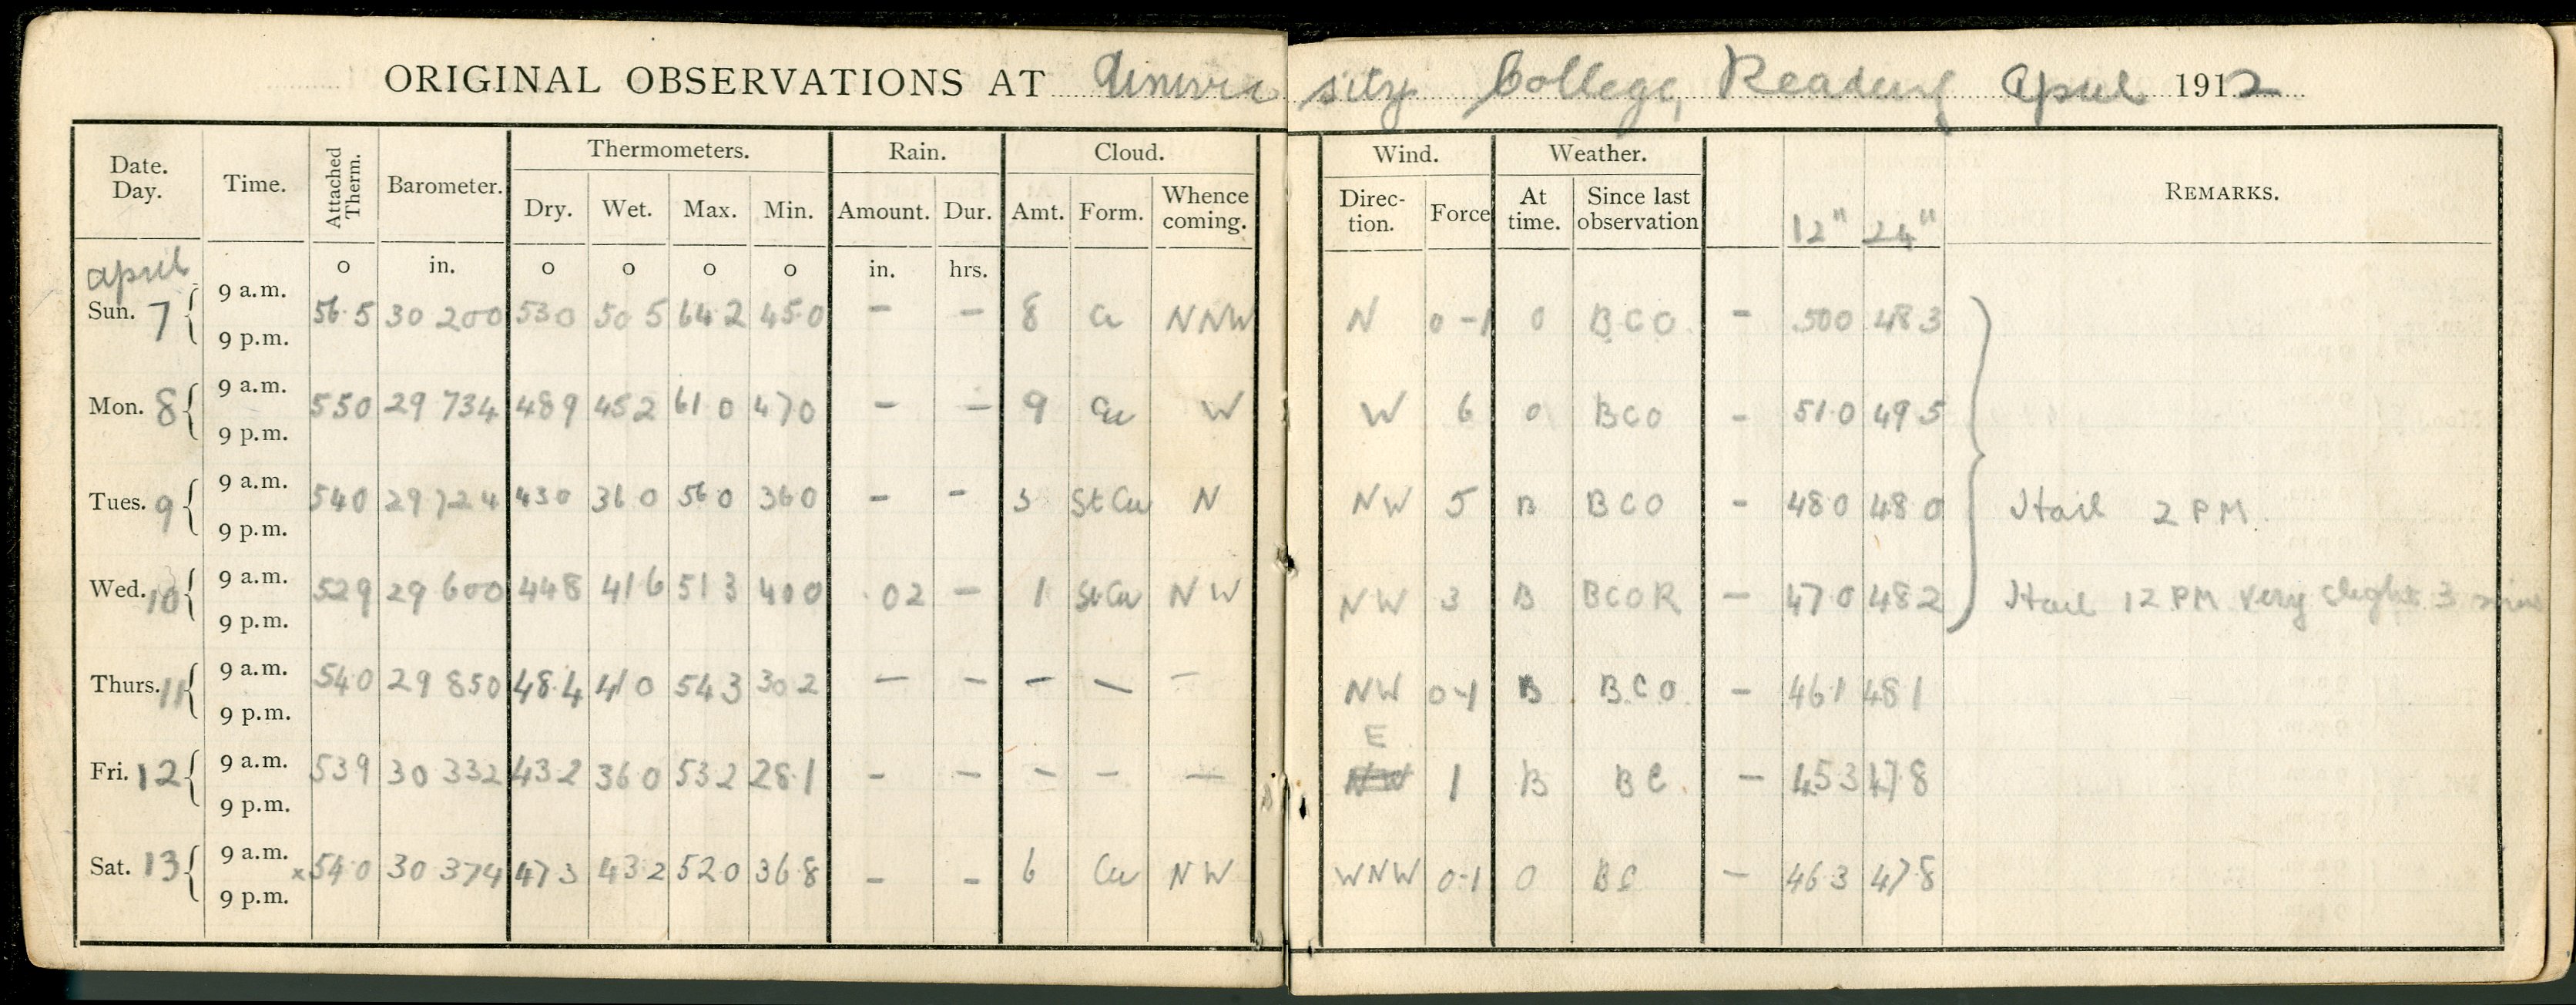 ORIGINAL OBSERVATIONS AT University College, Reading April 1912
Date. Day. Time. Attached Therm. Barometer. Thermometers. Rain. Cloud. Wind. Weather. REMARKS.
Dry. Wet. Max. Min. Amount. Dur. Amt. Form. Whence coming. Direc- tion. Force At time. Since last observation 12" 24"
April o in. o o o o in. hrs.
9 a.m.
Sun. 7 56.5 30 200 53 0 50 5 64 2 45 0 — — 8 Cu NNW N 0-1 O BCO — 500 48 3
9 p.m.
9 a.m.
Mon. 8 55 0 29 734 48 9 45 2 61 0 47 0 — — 9 Cu W W 6 O BCO — 51.0 49 5
9 p.m.
9 a.m.
Tues. 9 54 0 29 724 43 0 36 0 56 0 36 0 — — 5 St Cu N NW 5 B BCO — 48 0 48 0 Hail 2 PM.
9 p.m.
9 a.m.
Wed. 10 52 9 29 600 44 8 41 6 51 3 40 0 .02 — 1 St Cu NW NW 3 B BCOR — 47 0 48 2 Hail 12 PM very slight 3 mins
9 p.m.
9 a.m.
Thurs. 11 54 0 29 850 48.4 41 0 54 3 30 2 — — — — — NW 0-1 B B.C.O. — 46 1 48 1
9 p.m.
E
9 a.m.
Fri. 12 53 9 30 332 43 2 36 0 53 2 28.1 — — — — — NW 1 B BC. — 45 3 47 8
9 p.m.
9 a.m.
Sat. 13 x 54 0 30 374 47 3 43 2 52 0 36 8 — — 6 Cu NW WNW 0-1 O BC — 46 3 47 8
9 p.m.